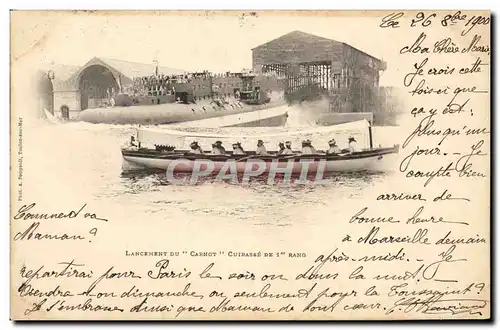 Ce 26 8bre 1900
Ma Chère Marie
Je crois cette
fois-ci que
ça y est:
plus qu'un
jour. - Je
compte bien
arriver de
bonne heure
à Marseille demain
après-midi. Je
repartirai pour Paris le soir ou dans la nuit.
dimanche, ou seulement pour la Toussaint?
Je t'embrasse ainsi que Maman de tout cœur.
Comment va
Maman?
LANCEMENT DU "CARNOT" CUIRASSÉ DE 1er RANG
Phot. A. Bougault, Toulon-sur-Mer
CPARAMA